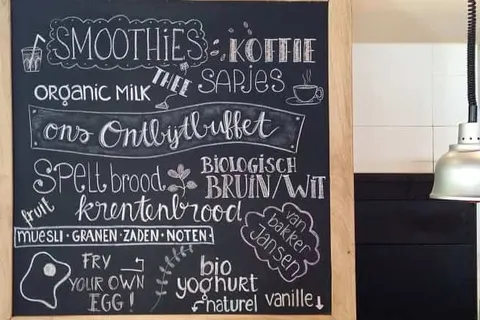 SMOOTHiES
KOFFIE
THEE
SAPJES
ORGANIC MILK
ons Ontbijtbuffet
Spelt brood
BIOLOGISCH
BRUIN/WIT
fruit
krentenbrood
van
bakker
Jansen
MUESLI · GRANEN · ZADEN · NOTEN
FRY
YOUR OWN
EGG!
bio
yoghurt
naturel
vanille